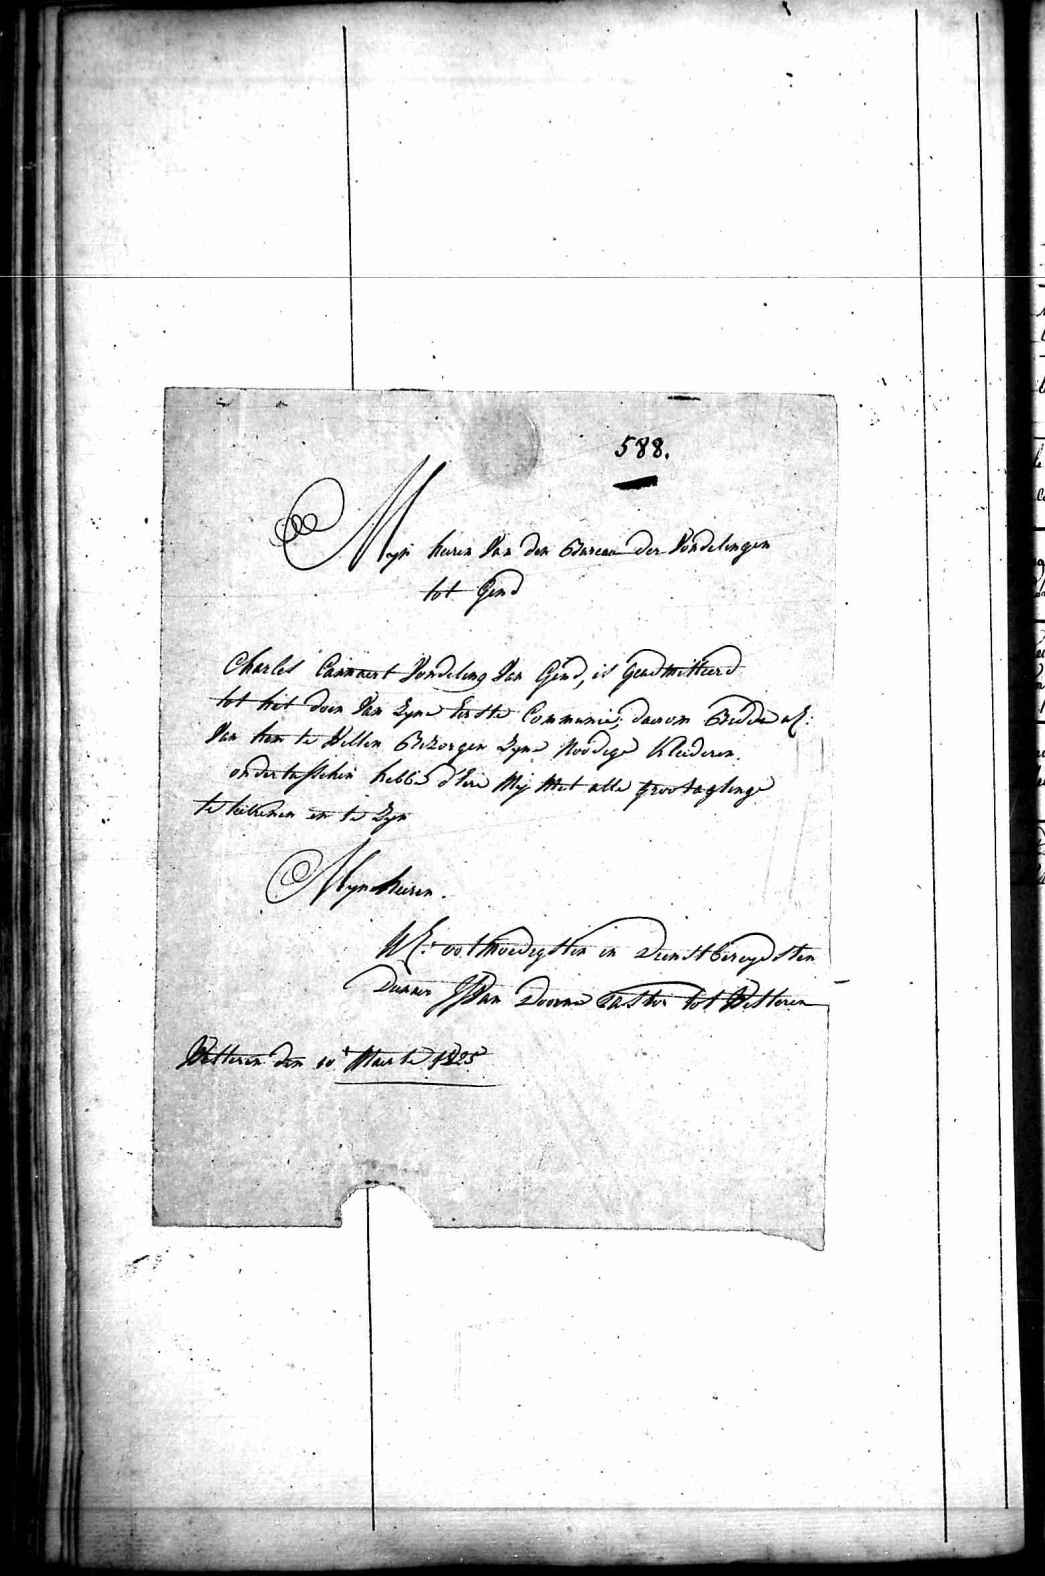 588.
Myn heeren Van den Bureau der Vondelingen
tot Gend
Charles Cannaert Vondeling Van Gend, is geadmitteerd
tot het doen Van Zyne Eerste Communie, daerom Bidde UE:
Van hem te Willen Bezorgen Zyne Noodige Kleederen.
ondertusschen hebbe d'Eere My Met alle
te teekenen en te Zyn
Mynheeren.
UE: ootmoedigsten en Dienstbereydsten
Dienaer Van Doorne Pastor tot Wetteren
Wetteren den 10 Maerte 1825